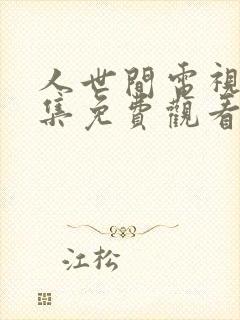 人世間電視
集免費觀看
江松